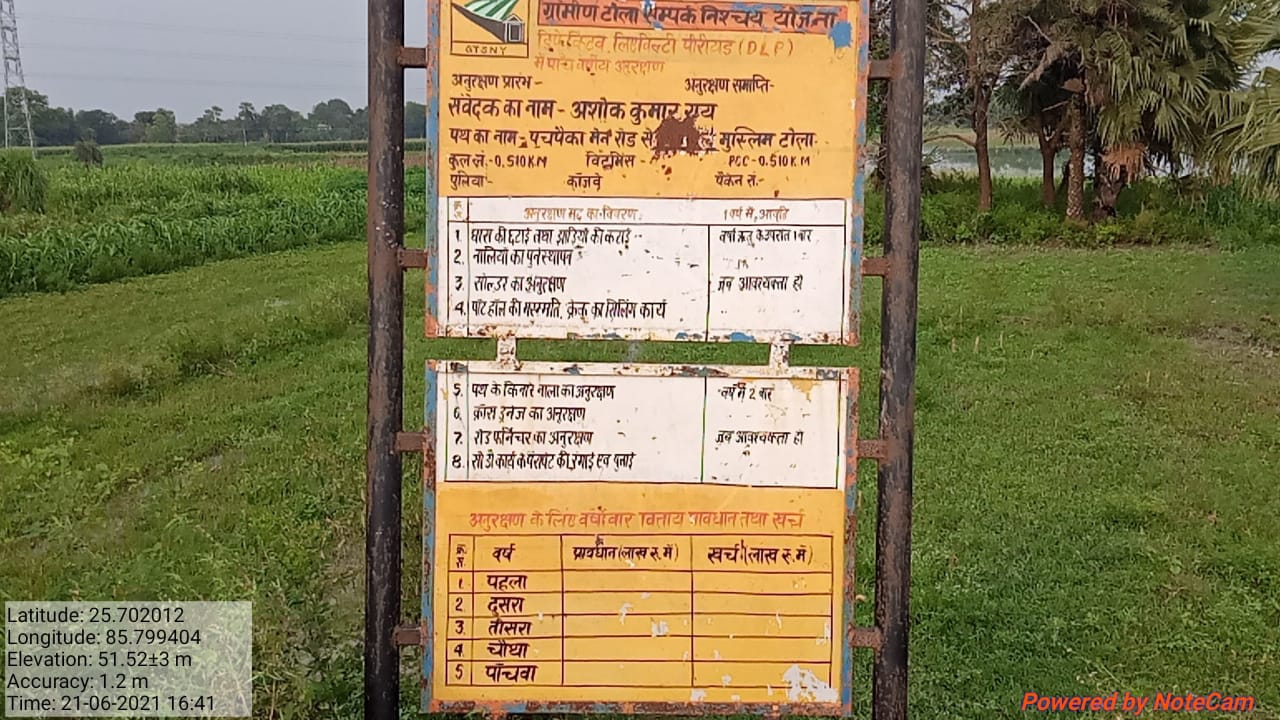 ग्रामीण टोला सम्पर्क निश्चय योजना
GTSNY
डिफेक्टिव लिएविल्टी पीरीयड (DLP)
में पाँच वर्षीय अनुरक्षण
अनुरक्षण प्रारंभ- अनुरक्षण समाप्ति-
संवेदक का नाम - अशोक कुमार राय
पथ का नाम - पचपैका मेन रोड से मुस्लिम टोला
कुल लं.-0.510KM विटुमिंस - PCC-0.510KM
पुलिया- कॉजवे पैकेज सं.-
क्र. सं. अनुरक्षण मद का विवरण 1 वर्ष में आवृति
1. घास की छटाई तथा झाड़ियों की कटाई वर्षा ऋतु के उपरांत 1 बार
2. नालियों का पुर्नस्थापन ,,
3. सोल्डर का अनुरक्षण जब आवश्यक्ता हो
4. पॉट हॉल की मरम्मति, क्रेक का सिलिंग कार्य ,,
5. पथ के किनारे नाला का अनुरक्षण वर्ष में 2 बार
6. क्रॉस ड्रेनेज का अनुरक्षण
7. रोड फर्निचर का अनुरक्षण जब आवश्यक्ता हो
8. सी डी कार्य के पैरापेट की रंगाई एवं पुताई
अनुरक्षण के लिए वर्षोवार वित्तीय प्रावधान तथा खर्च
क्र. सं. वर्ष प्रावधान (लाख रू. में) खर्च (लाख रू. में)
1. पहला
2. दुसरा
3. तीसरा
4 चौथा
5 पाँचवा
Latitude: 25.702012
Longitude: 85.799404
Elevation: 51.52±3 m
Accuracy: 1.2 m
Time: 21-06-2021 16:41
Powered by NoteCam